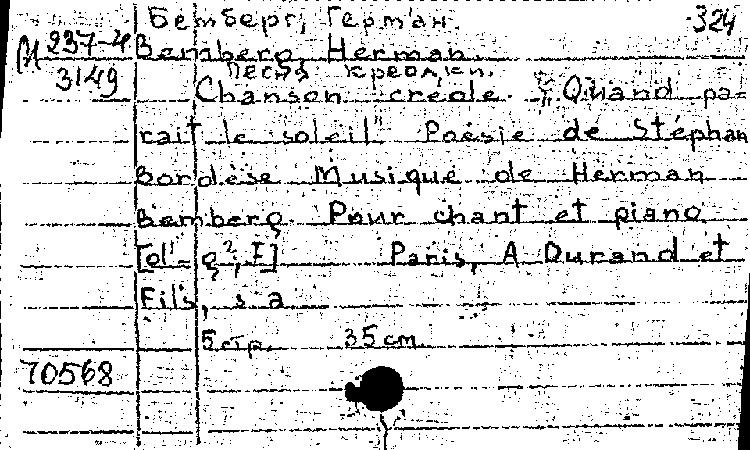 Бемберг, Герман. 324
М 237-4 Bemberg, Herman.
3149 Песня креолки.
Chanson créole. "Quand pa-
rait le soleil" Poésie de Stéphan
Bordèse Musique de Herman
Bemberg. Pour chant et piano
[e¹-g², F] Paris, A Durand et
Fils, s a
5 стр. 35 cm.
70568